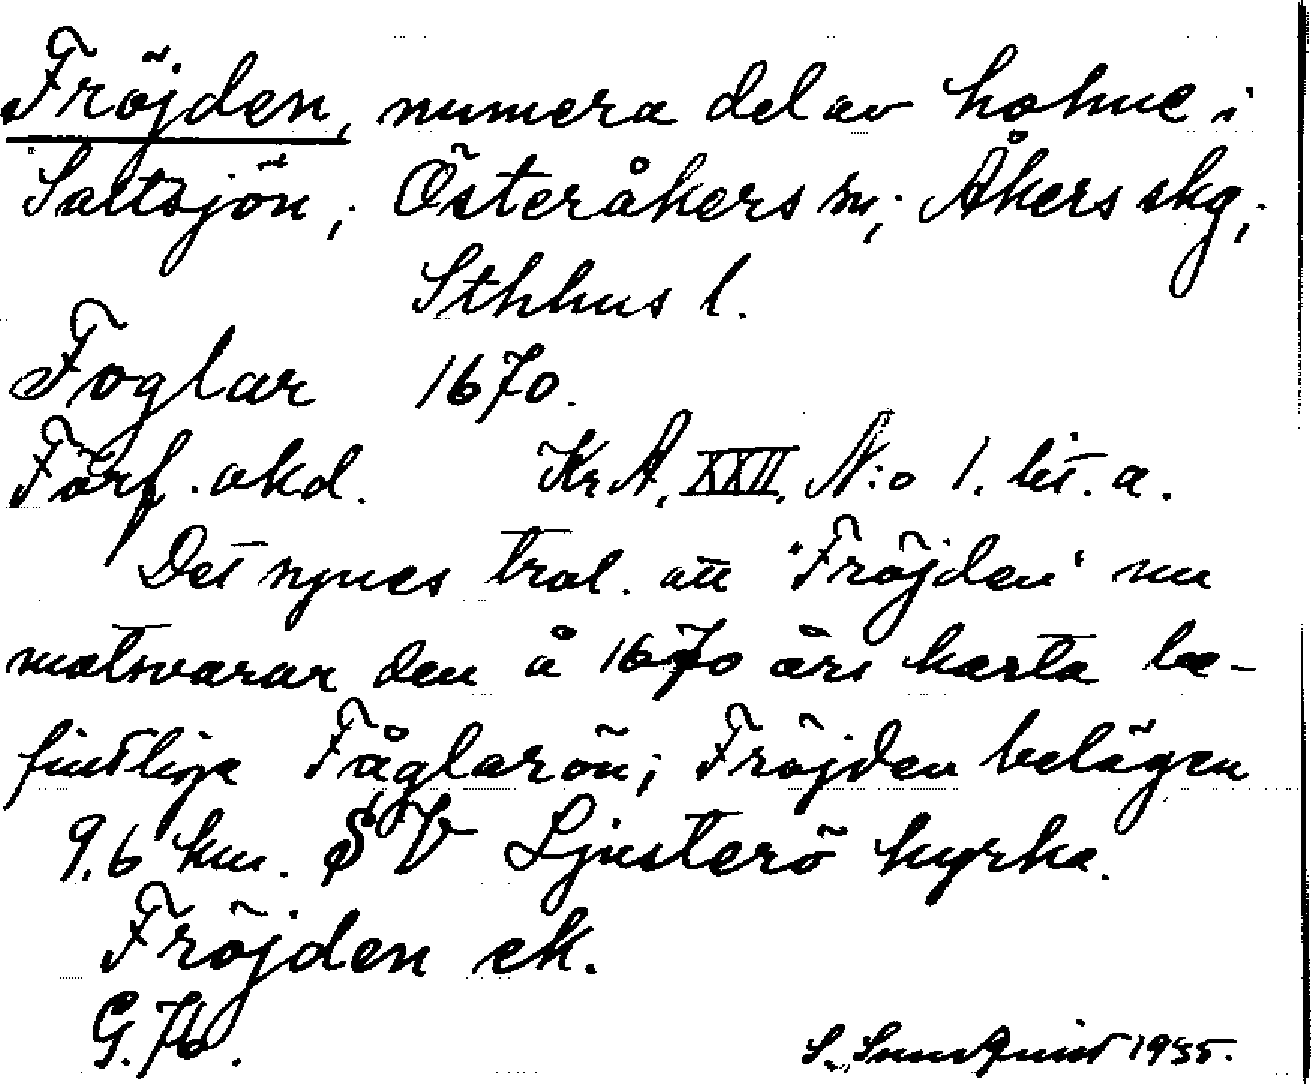 Fröjden, numera del av holme i
Saltsjön; Österåkers sn; Åkers skg;
Sthlms l.
Foglar 1670.
Förf. okd. Kr A. XXII. N:o 1. lit. a.
Det synes trol. att "Fröjden" nu
motsvarar den å 1670 års karta be-
fintliga Fåglarön; Fröjden belägen
9.6 km. SV Ljusterö kyrka.
Fröjden ek.
G. 76.
1935.